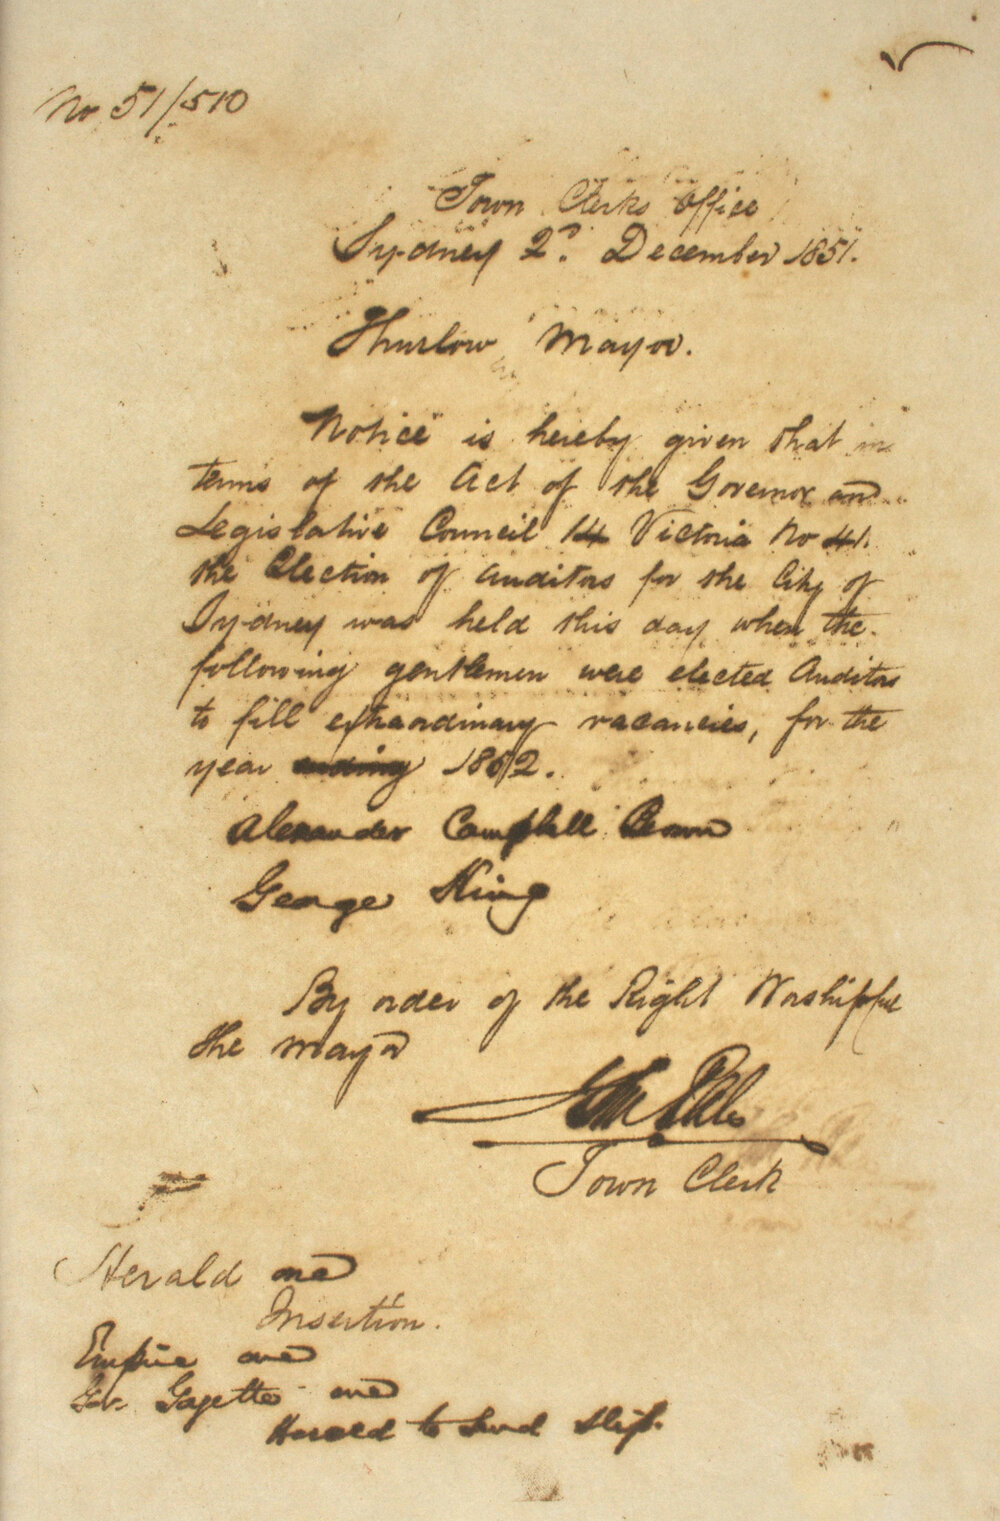 No 51/510
Town Clerks Office
Sydney 2d. December 1851.
Thurlow Mayor.
Notice is hereby given that in
terms of the Act of the Governor and
Legislative Council 14 Victoria No 41.
the Election of Auditors for the City of
Sydney was held this day when the
following gentlemen were elected Auditors
to fill extraordinary vacancies, for the
year ending 1852.
Alexander Campbell Brown
George King
By order of the Right Worshipful
the Mayor
Town Clerk
Herald one
Insertion.
Empire one
Gov. Gazette one
Herald to send slip.